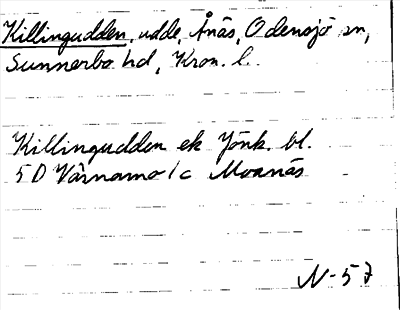 Killingudden, udde, Ånäs, Odensjö sn,
Sunnerbo hd, Kron. l.
Killingudden ek Jönk. bl.
5D Värnamo / c Moanäs
N-57